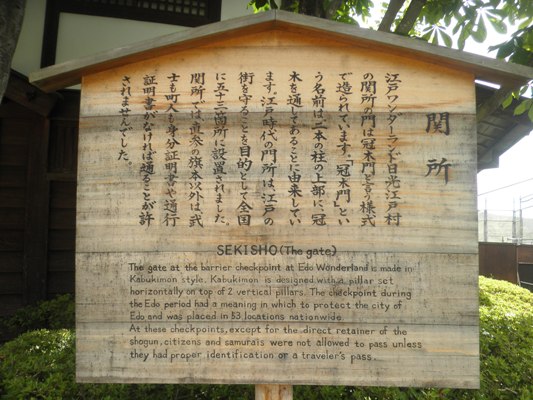 関所
江戸ワンダーランド日光江戸村
の関所の門は冠木門と言う様式
で造られています。「冠木門」とい
う名前は、二本の柱の上部に、冠
木を通してあることに由来してい
ます。江戸時代の門所は、江戸の
街を守ることを目的として全国
に五十三箇所に設置されました。
関所では、直参の旗本以外は武
士も町人も身分証明書や通行
証明書がなければ通ることが許
されませんでした。
SEKISHO (The gate)
The gate at the barrier checkpoint at Edo Wonderland is made in
Kabukimon style. Kabukimon is designed with a pillar set
horizontally on top of 2 vertical pillars. The checkpoint during
the Edo period had a meaning in which to protect the city of
Edo and was placed in 53 locations nationwide.
At these checkpoints, except for the direct retainer of the
shogun, citizens and samurais were not allowed to pass unless
they had proper identification or a traveler's pass.